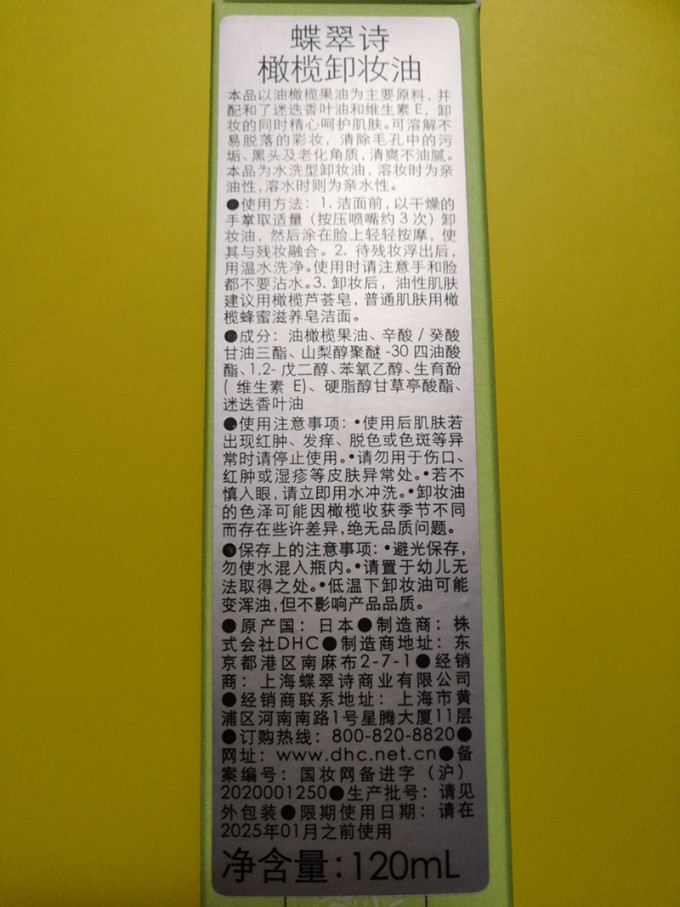 蝶翠诗
橄榄卸妆油
本品以油橄榄果油为主要原料，并
配和了迷迭香叶油和维生素E，卸
妆的同时精心呵护肌肤。可溶解不
易脱落的彩妆，清除毛孔中的污
垢、黑头及老化角质，清爽不油腻。
本品为水洗型卸妆油，溶妆时为亲
油性，溶水时则为亲水性。
●使用方法：1. 洁面前，以干燥的
手掌取适量（按压喷嘴约3次）卸
妆油，然后涂在脸上轻轻按摩，使
其与残妆融合。2. 待残妆浮出后，
用温水洗净。使用时请注意手和脸
都不要沾水。3. 卸妆后，油性肌肤
建议用橄榄芦荟皂，普通肌肤用橄
榄蜂蜜滋养皂洁面。
●成分：油橄榄果油、辛酸/癸酸
甘油三酯、山梨醇聚醚-30四油酸
酯、1,2-戊二醇、苯氧乙醇、生育酚
(维生素 E)、硬脂醇甘草亭酸酯、
迷迭香叶油
●使用注意事项：•使用后肌肤若
出现红肿、发痒、脱色或色斑等异
常时请停止使用。•请勿用于伤口、
红肿或湿疹等皮肤异常处。•若不
慎入眼，请立即用水冲洗。•卸妆油
的色泽可能因橄榄收获季节不同
而存在些许差异，绝无品质问题。
●保存上的注意事项：•避光保存，
勿使水混入瓶内。•请置于幼儿无
法取得之处。•低温下卸妆油可能
变浑浊，但不影响产品品质。
●原产国：日本●制造商：株
式会社DHC●制造商地址：东
京都港区南麻布2-7-1●经销
商：上海蝶翠诗商业有限公司
●经销商联系地址：上海市黄
浦区河南南路1号星腾大厦11层
●订购热线：800-820-8820●
网址：www.dhc.net.cn●备
案编号：国妆网备进字（沪）
2020001250●生产批号：请见
外包装●限期使用日期：请在
2025年01月之前使用
净含量：120mL